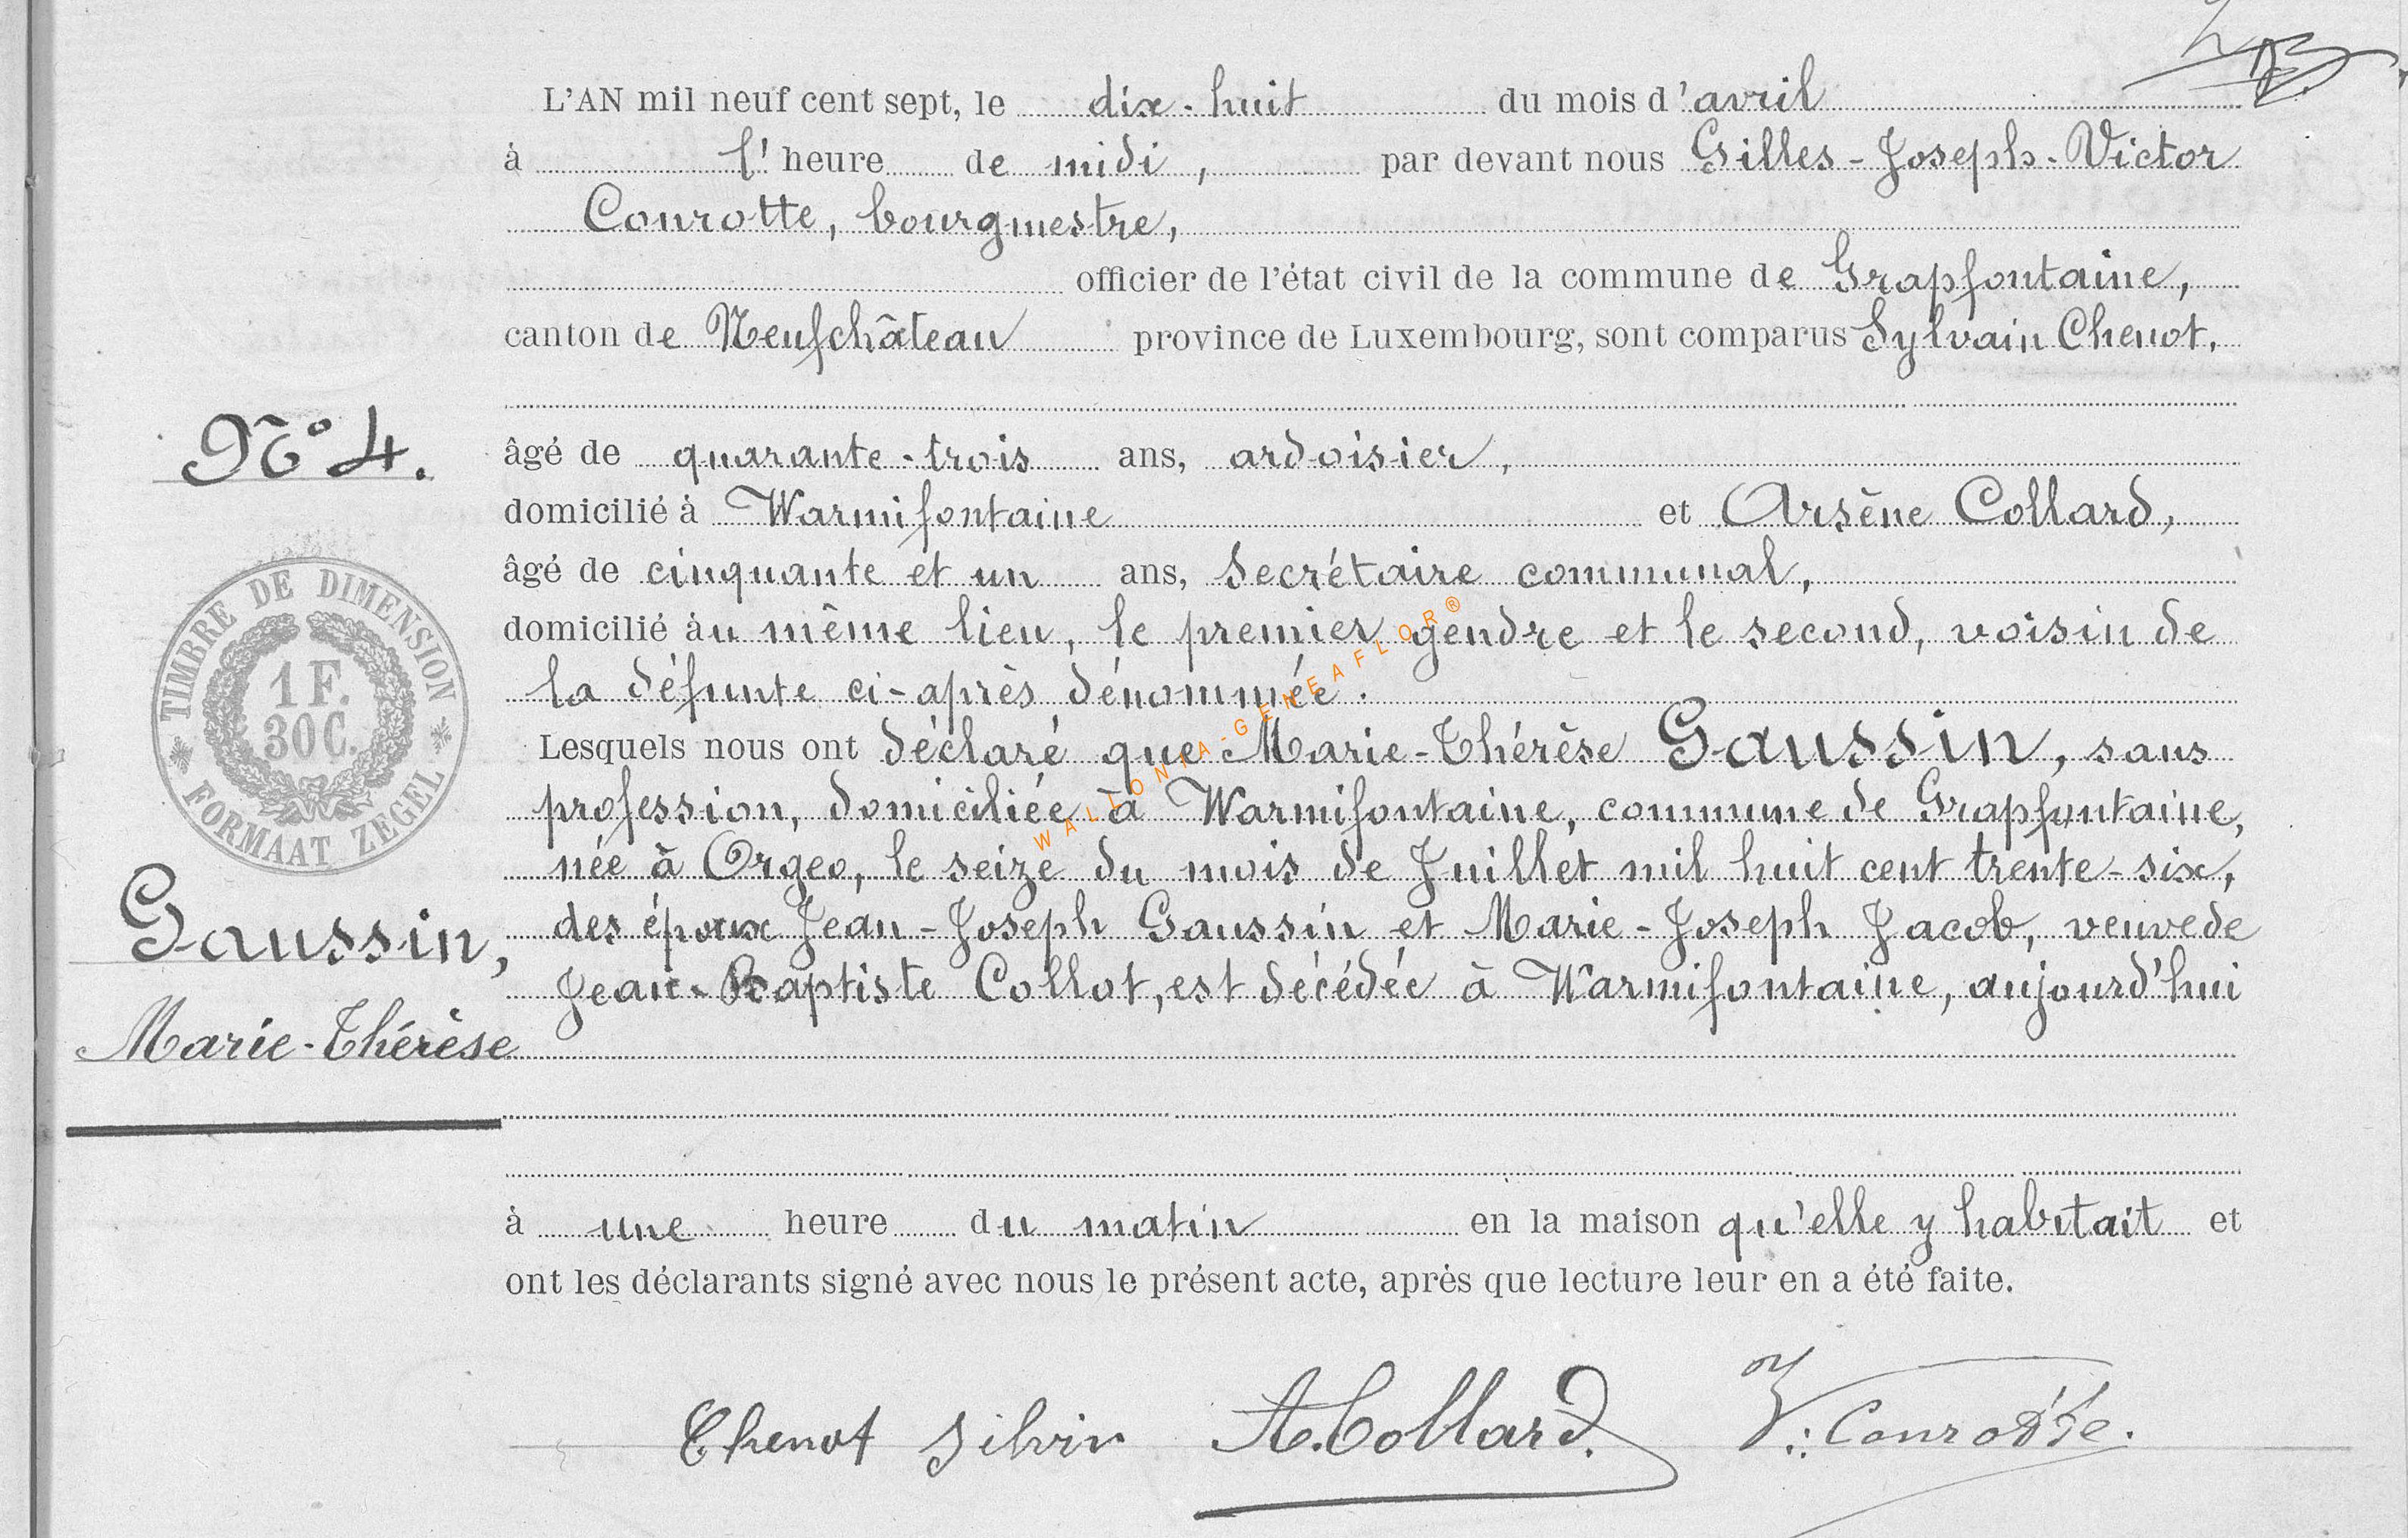 L'AN mil neuf cent sept, le dix-huit du mois d'avril
à l'heure de midi, par devant nous Gilles-Joseph-Victor
Conrotte, bourgmestre,
officier de l'état civil de la commune de Grapfontaine,
canton de Neufchâteau province de Luxembourg, sont comparus Sylvain Chenot,
N° 4.
âgé de quarante-trois ans, ardoisier,
domicilié à Warmifontaine et Arsène Collard,
âgé de cinquante et un ans, secrétaire communal,
domicilié au même lieu, le premier gendre et le second, voisin de
la défunte ci-après dénommée.
TIMBRE DE DIMENSION
1 F.
30 C.
FORMAAT ZEGEL
WALLONIA-GENEAFLOR®
Lesquels nous ont déclaré que Marie-Thérèse Gaussin, sans
profession, domiciliée à Warmifontaine, commune de Grapfontaine,
née à Orgeo, le seize du mois de Juillet mil huit cent trente-six,
des époux Jean-Joseph Gaussin et Marie-Joseph Jacob, veuve de
Jean-Baptiste Collot, est décédée à Warmifontaine, aujourd'hui
Gaussin,
Marie-Thérèse
à une heure du matin en la maison qu'elle y habitait et
ont les déclarants signé avec nous le présent acte, après que lecture leur en a été faite.
Chenot Silvin A. Collard. V. Conrotte.